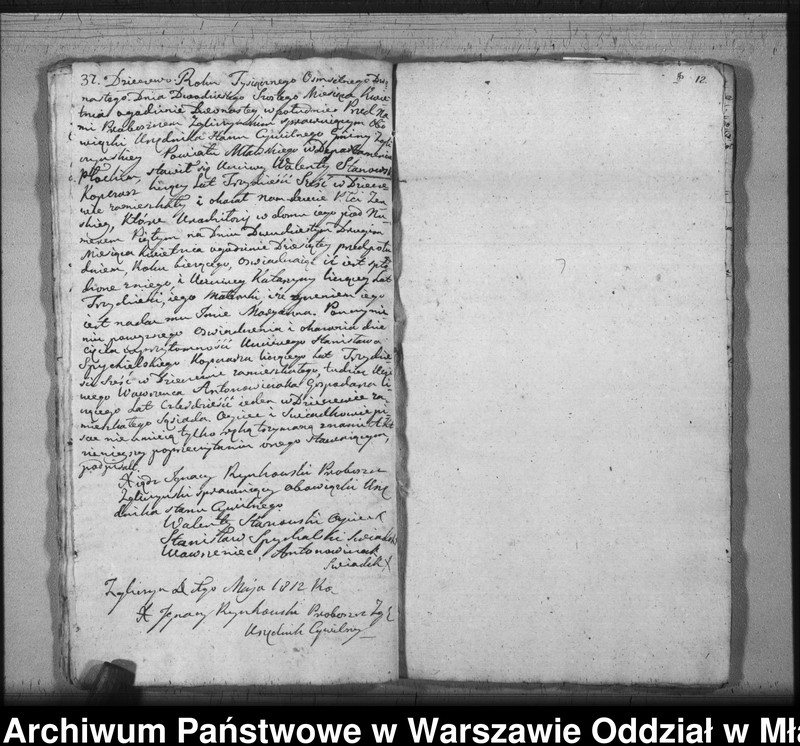 32. Dzieczewo. Roku Tysiącznego Osmsetnego Dwu
nastego Dnia Dwudziestego Szostego Miesiąca Kwie
tnia o godzinie Dwonastey w południe Przed Na
mi Proboszczem Zgliczynskim sprawuiącym Obo
wiązki Urzędnika Stanu Cywilnego Gminy Zgli
czynskiey Powiatu Mławskiego w Departamencie
Płockim, stawił się Uczciwy Walenty Stanowski
liczący lat Trzydzieści Szesć w Dziecze
wie zamieszkały i okazał nam dziecie Płci Zen
skiey, które Urodziło się w domu iego pod Nu
merem Piątym na dniu Dwudziestym Drugim
Miesiąca Kwietnia o godzinie Dziesiątey przed połu
dniem Roku bierzącego, oswiadczaiąc iż iest spło
dzone z niego i Uczciwey Katarzyny liczącey lat
Trzydzieści, iego Małżonki i że życzeniem iego
iest nadać mu Imie Maryanna. Po uczynie
niu powyższego Oswiadczenia i okazaniu dzie
cięcia w przytomności Uczciwego Stanisława
Spychalskiego liczącego lat Trzydzie
sci Szesć w Dzieczewie zamieszkałego, tudzież Ucz
ciwego Wawrzenca Antonowiczaka Gospodarza li
czącego lat Czterdzieści ieden w Dzieczewie za
mieszkałego Sąsiada. Oyciec i Swiadkowie pi
sać nie umieią tylko ręką trzymaną znami Akt
ninieyszy po przeczytaniu onego stawaiącym,
podpisali.
X iądz Ignacy Rynkowski Proboszcz
Zgliczynski sprawuiący obowiązki Urzę
dnika stanu Cywilnego
Walenty Stanowski Oyciec
Stanisław Spychalski swiadek
Wawrzeniec Antonowiczak
Swiadek X
Zgliczyn d. Maja 1812 Ro
X Ignacy Rynkowski Proboszcz Zgl
Urzędnik Cywilny
12.
Archiwum Państwowe w Warszawie Oddział w Mła